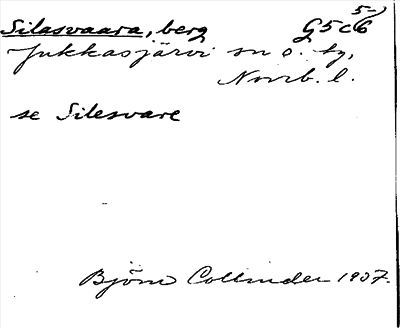 Silasvaara, berg G5c6 5-)
Jukkasjärvi sn o. tg,
Norrb. l.
se Silesvare
Björn Collinder 1907.